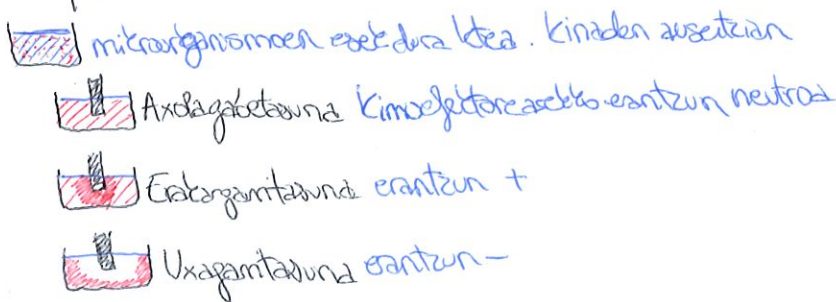 mikroorganismoen esekidura ktea. kinaden ausentzian
Axolagabetasuna kimoefektorearekiko erantzun neutroa
Erakargarritasuna erantzun +
Uxagarritasuna erantzun -